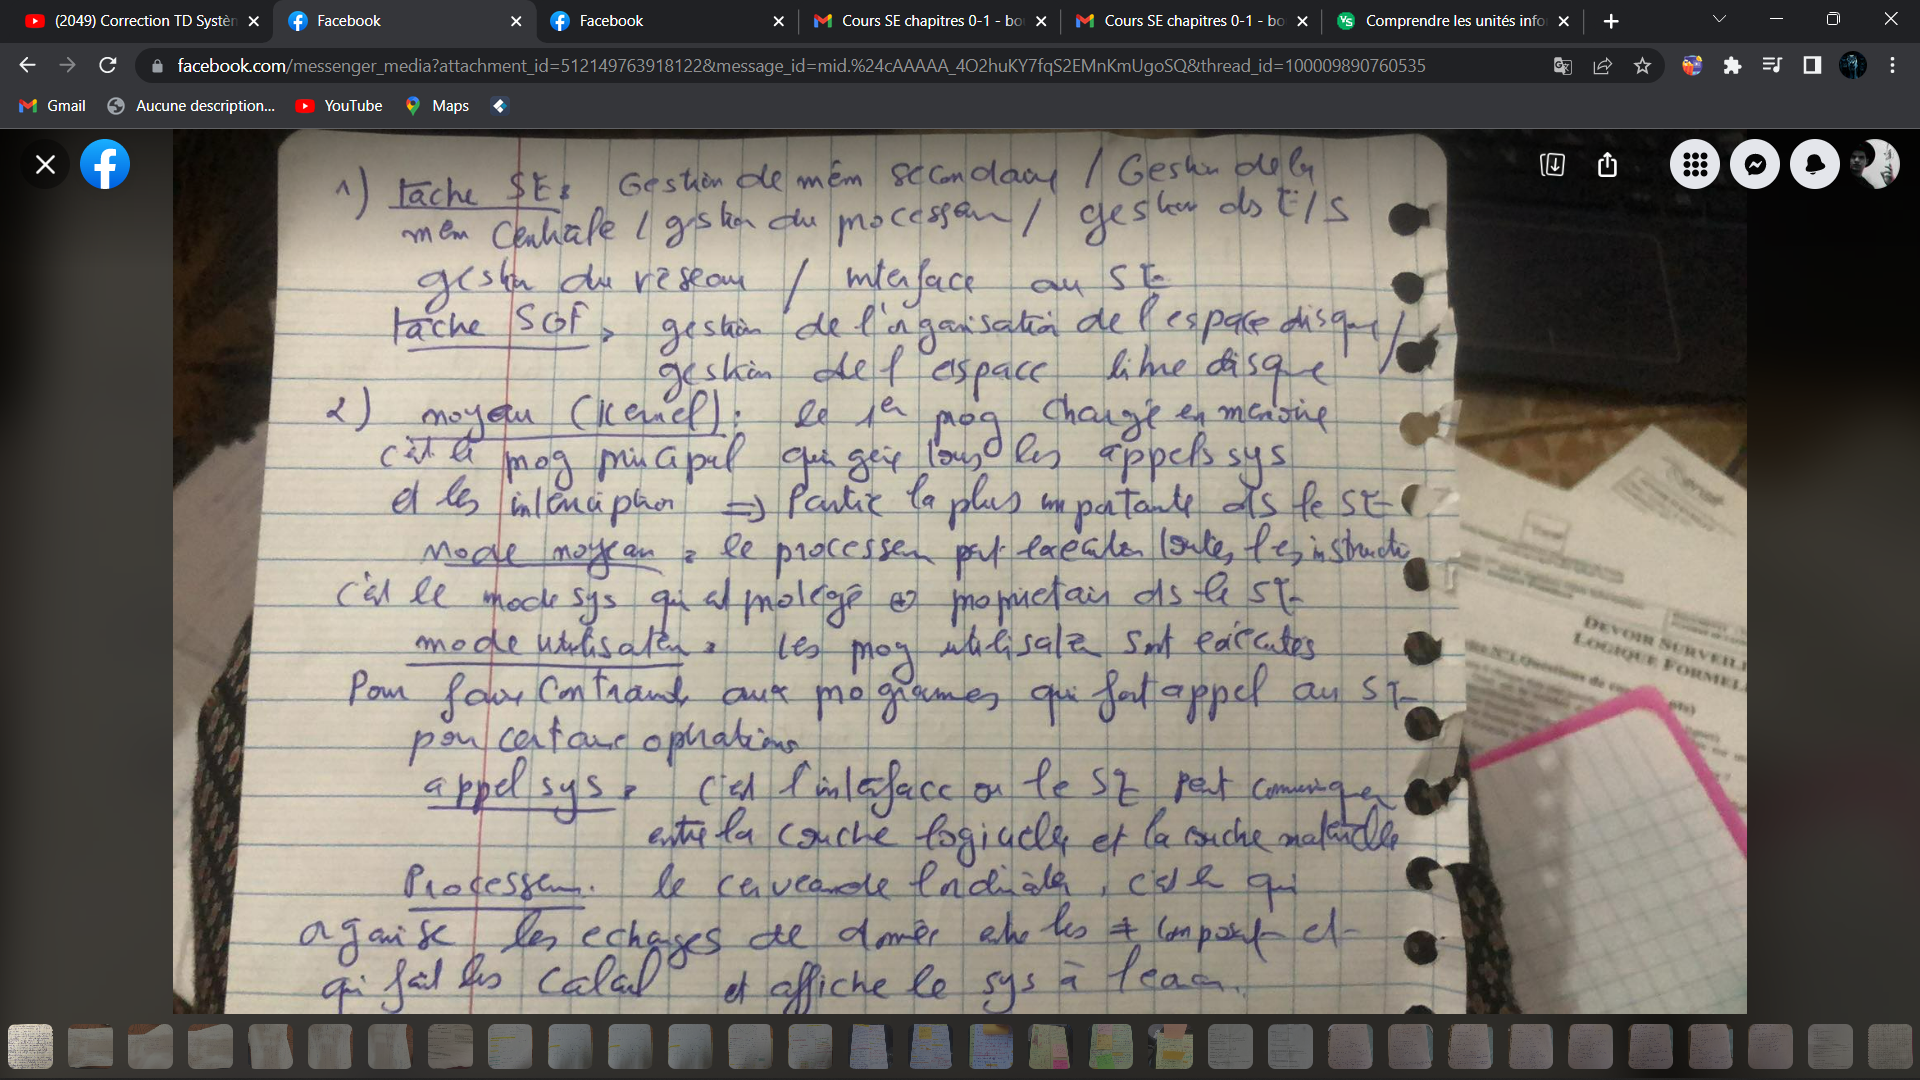 (2049) Correction TD Systèm
Facebook
Facebook
Cours SE chapitres 0-1 - bo
Cours SE chapitres 0-1 - bo
Comprendre les unités info
facebook.com/messenger_media?attachment_id=512149763918122&message_id=mid.%24cAAAAA_4O2huKY7fqS2EMnKmUgoSQ&thread_id=100009890760535
Gmail
Aucune description...
YouTube
Maps
1) tâche SE: Gestion de mém secondaire / Gestion de la
mém centrale / gestion du processeur / gestion ds E/S
gestion du réseau / interface au SE
tâche SGF: gestion de l'organisation de l'espace disque /
gestion de l'espace libre disque
2) noyau (Kernel): le 1er prog chargé en mémoire
c'est le prog principal qui gère tous les appels sys
et les interruption => Partie la plus importante ds le SE
Mode noyau: le processeur peut exécuter toutes les instructi
c'est le mode sys qui est protégé propriétair ds le SE
mode utilisateur: les prog utilisate sont exécutés
Pour faire contraint aux programes qui font appel au SE
pour certaine opérations
appel sys: c'est l'interface ou le SE peut communiquer
entre la couche logicielle et la couche matérielle
Processeur: le cerveau de l'ordinateur, c'est le qui
organise les echanges de donnée entre les ≠ composant et
qui fait les calcul et affiche le sys à l'ecran.
DEVOIR SURVEIL
LOGIQUE FORMEL